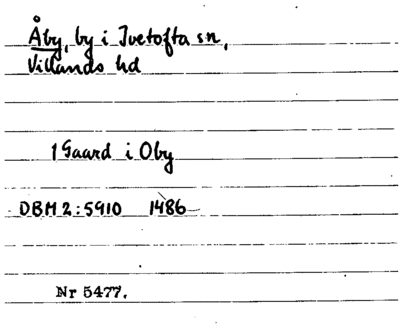 Åby, by i Ivetofta sn,
Villands hd
1 Gaard i Oby
DBM 2:5910 1486
Nr 5477.